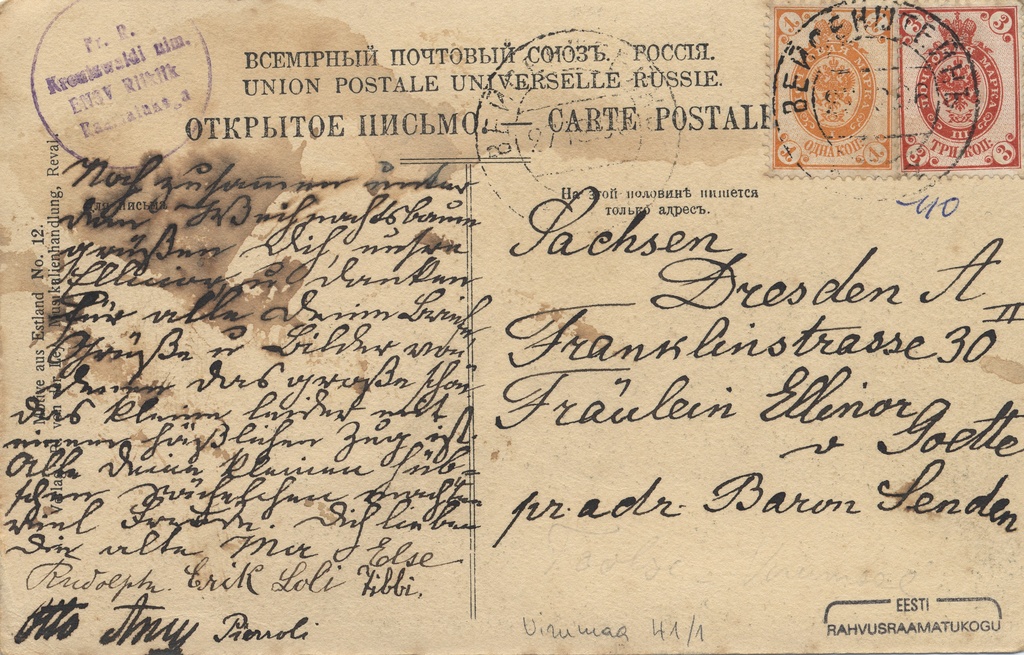 Fr. R.
Kreutzwaldi nim.
ENSV Riiklik
Raamatukogu
ВСЕМІРНЫЙ ПОЧТОВЫЙ СОЮЗЪ. РОССІЯ.
UNION POSTALE UNIVERSELLE RUSSIE.
ОТКРЫТОЕ ПИСЬМО. — CARTE POSTALE
ВЕЙСЕНШТЕЙНЪ
ОДНА КОП.
МАРКА
ТРИ КОП.
Для письма
На этой половинѣ пишется
только адресъ.
110
Motive aus Estland No. 12.
Verlag von der Ley, Musikalienhandlung, Reval.
Noch zusammen unter
dem Weihnachtsbaum
grüßen Dich, unsre
Ellinor u. danken
für alle Deine Brief
Grüße u Bilder von
denen das große schön
das kleine leider mit
einem häßlichen Zug ist.
Alle Deine kleinen hüb-
schen Sächelchen machten
viel Freude. Dich lieben
Die alte Ma Else
Rudolph. Erik Loli Tibbi.
Otto Anny Pieroli
Sachsen
Dresden A
Franklinstrasse 30 II
Fräulein Ellinor
v Goette
pr. adr. Baron Senden
Virumaa 41/1
EESTI
RAHVUSRAAMATUKOGU